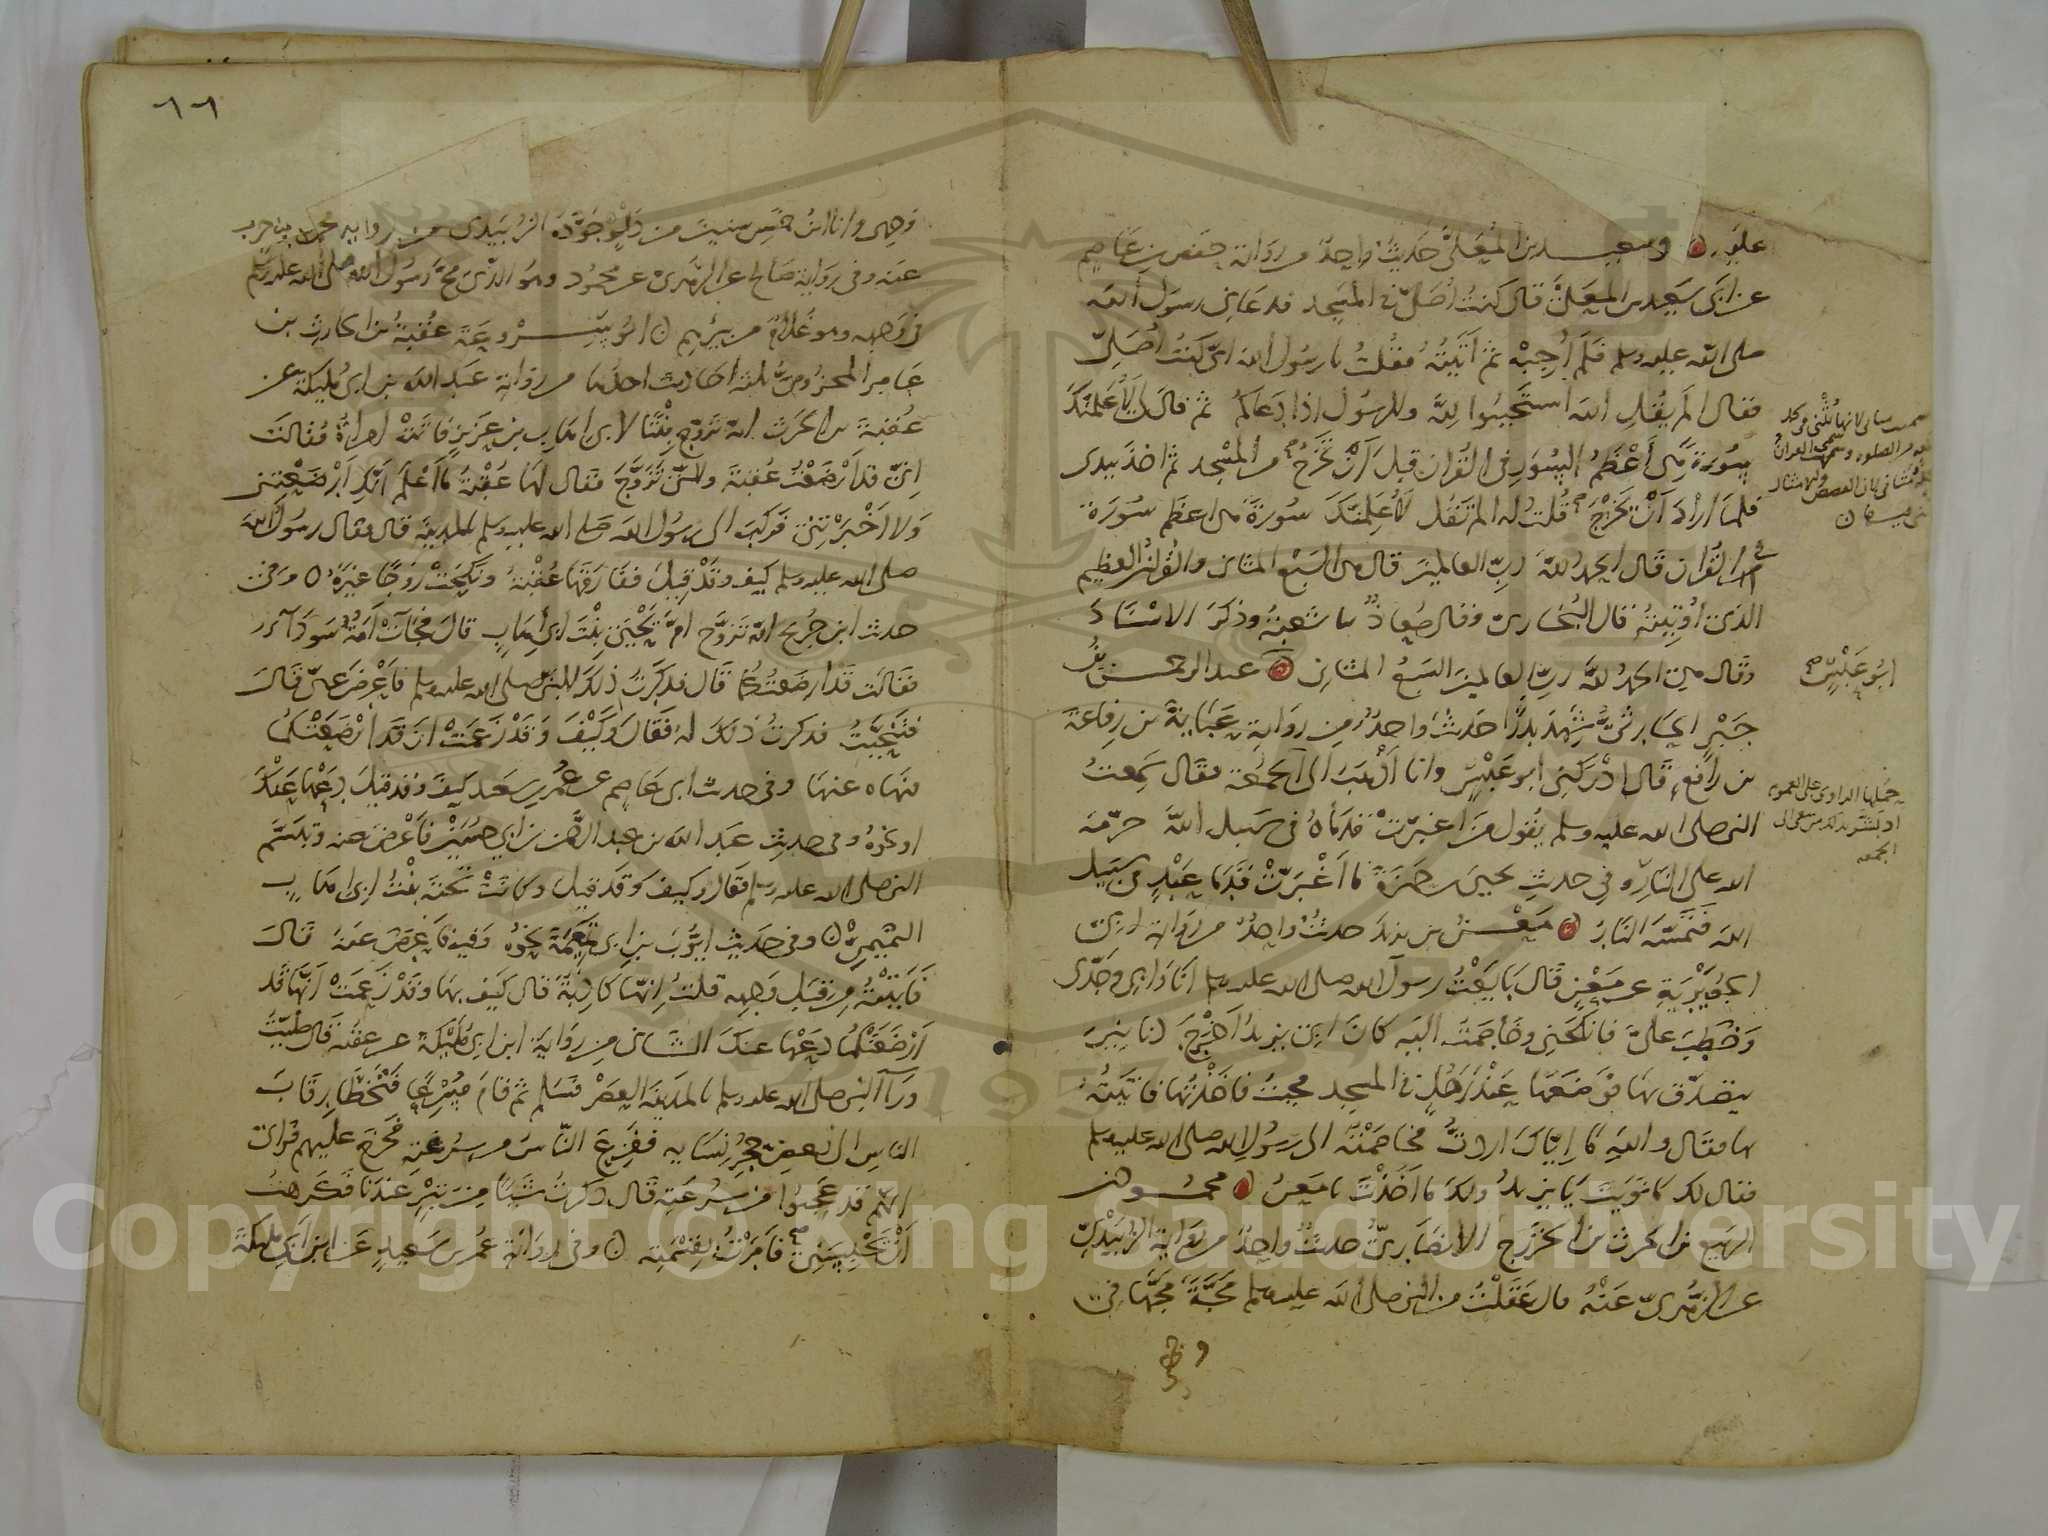 عليه وسعيد بن المعلى حديث واحد من رواية حفص بن عاصم
عن ابي سعيد بن المعلى قال كنت اصلي في المسجد فدعاني رسول الله
صلى الله عليه وسلم فلم اجبه ثم اتيته فقلت يا رسول الله اني كنت اصلي
فقال الم يقل الله استجيبوا لله وللرسول اذا دعاكم ثم قال لي لاعلمنك
سورة هي اعظم السور في القران قبل ان تخرج من المسجد ثم اخذ بيدي
فلما اراد ان يخرج قلت له الم تقل لاعلمنك سورة هي اعظم سورة
في القران قال الحمد لله رب العالمين قال هي السبع المثاني والقران العظيم
الذي اوتيته قال البخاري وقال معاذ نا شعبة وذكر الاسناد
وقال هي الحمد لله رب العالمين السبع المثاني عبد الرحمن بن
جبر الحارثي شهد بدرا حديث واحد من رواية عباية بن رفاعة
بن رافع قال ادركني ابو عبس وانا اذهب الى الجمعة فقال سمعت
النبي صلى الله عليه وسلم يقول من اغبرت قدماه في سبيل الله حرمه
الله على النار وفي حديث يحيى بن حمزة ما اغبرت قدما عبد في سبيل
الله فتمسه النار معن بن يزيد حديث واحد من رواية ابي
الجويرية عن معن قال بايعت رسول الله صلى الله عليه وسلم انا وابي وجدي
وخطب علي فانكحني وخاصمت اليه كان ابي يزيد اخرج دنانير
يتصدق بها فوضعها عند رجل في المسجد فجئت فاخذتها فاتيته
بها فقال والله ما اياك اردت فخاصمته الى رسول الله صلى الله عليه وسلم
فقال لك ما نويت يا يزيد ولك ما اخذت يا معن محمود بن
الربيع بن الحرث بن الخزرج الانصاري حديث واحد من رواية الزبيدي
عن الزهري عنه قال عقلت من النبي صلى الله عليه وسلم مجة مجها في
ابو عبس
حملها الراوي على العموم
الجمعه
٦٦
وجهي وانا ابن خمس سنين من دلو جوده الزبيدي من رواية محمد بن حرب
عنه وفي رواية صالح عن الزهري عن محمود وهو الذي مج رسول الله صلى الله عليه وسلم
في وجهه وهو غلام من بئرهم ابو سروعة عقبة بن الحارث بن
عامر المخزومي ثلثة احاديث احدها من رواية عبد الله بن ابي مليكة عن
عقبة بن الحرث انه تزوج بنتا لابي اهاب بن عزيز فاتته امراة فقالت
اني قد ارضعت عقبة والتي تزوج فقال لها عقبة ما اعلم انك ارضعتني
ولا اخبرتني فركب الى رسول الله صلى الله عليه وسلم بالمدينة قال فقال رسول الله
صلى الله عليه وسلم كيف وقد قيل ففارقها عقبة ونكحت زوجا غيره ومن
حديث ابن جريج انه تزوج ام يحيى بنت ابي اهاب قال فجاءت امة سوداء
فقالت قد ارضعتكما قال فذكرت ذلك للنبي صلى الله عليه وسلم فاعرض عني قال
فتنحيت فذكرت ذلك له فقال وكيف وقد زعمت ان قد ارضعتكما
فنهاه عنها وفي حديث ابي عاصم عن عمر بن سعيد كيف وقد قيل دعها عنك
او نحوه وفي حديث عبد الله بن عبد الرحمن بن ابي حسين فاعرض عنه وتبسم
النبي صلى الله عليه وسلم فقال وكيف وقد قيل وكانت تحته بنت ابي اهاب
التميمي وفي حديث ايوب بن ابي تميمة نحوه وفيه فاعرض عنه قال
فاتيته من قبل وجهه قلت انها كاذبة قال كيف بها وقد زعمت انها قد
ارضعتكما دعها عنك الثاني من رواية ابن ابي مليكة عن عقبة قال صليت
وراء النبي صلى الله عليه وسلم بالمدينة العصر فسلم ثم قام مسرعا فتخطا رقاب
الناس الى بعض حجر نسايه ففزع الناس من سرعته فخرج عليهم فراى
انهم قد عجبوا من سرعته قال ذكرت شيئا من تبر عندنا فكرهت
ان يحبسني فامرت بقسمته وفي رواية عمر بن سعيد عن ابن ابي مليكة
Copyright © King Saud University
1957